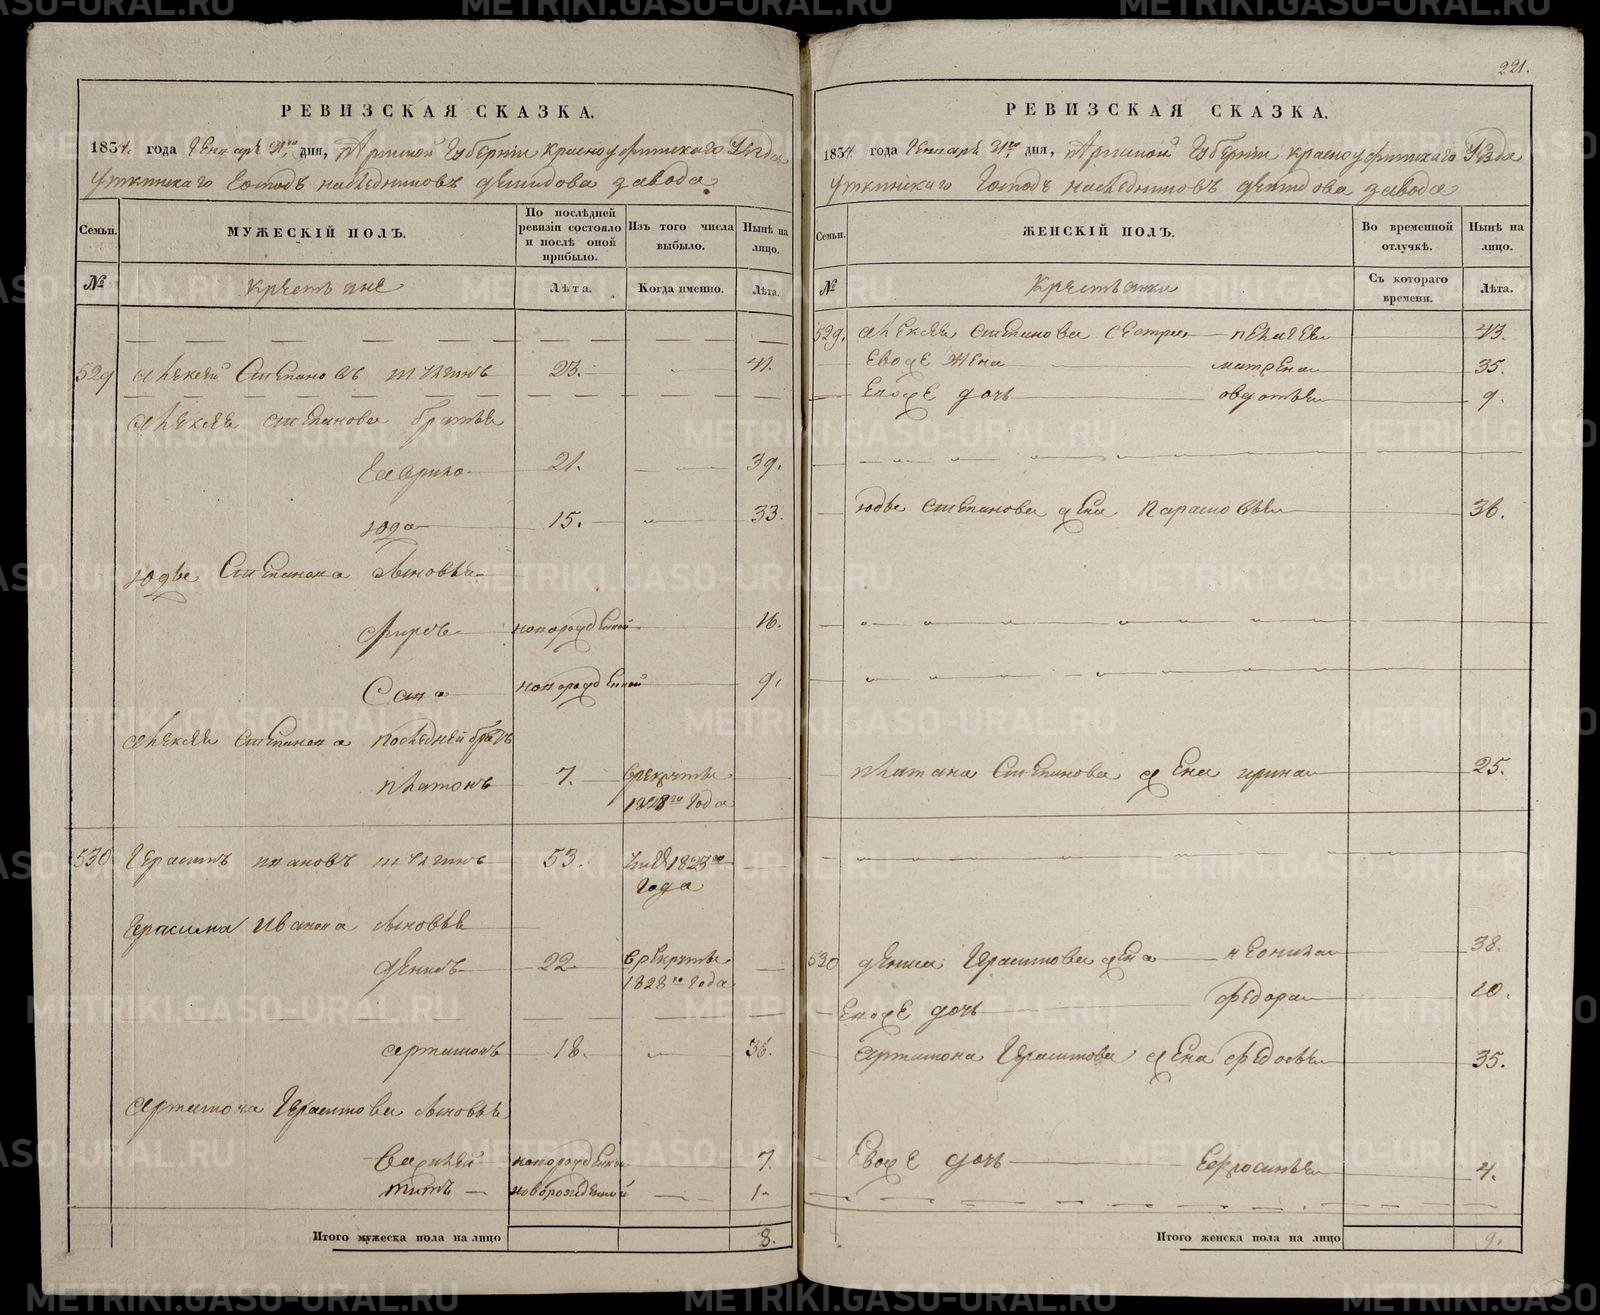 221.
РЕВИЗСКАЯ СКАЗКА.
1834. года Генваря 21го дня, Пермской Губернии Красноуфимскаго Уезда
Уткинскаго Господъ наследниковъ Демидова завода
Семьи.
МУЖЕСКІЙ ПОЛЪ.
По послѣдней ревизіи состояло и послѣ оной прибыло.
Изъ того числа выбыло.
Нынѣ на лицо.
№
Крестьяне
Лѣта.
Когда именно.
Лѣта.
529 Алексей Степановъ 23. 41.
Алексея Степанова братья
Гаврило 21. 39.
Юда 15. 33.
Юды Степанова сыновья
Фирсъ новорожденной 16.
Сава новорожденной 9.
Алексея Степанова последней братъ
Платонъ 7. в рекруты
1828го года
530 Герасимъ Ивановъ 53. 1823го
года
Герасима Иванова сыновья
Денисъ 22 в рекруты
1828го года
Артамонъ 18. 36.
Артамона Герасимова сыновья
Василей новорожденной 7.
Титъ новорожденной 1.
Итого мужеска пола на лицо 8.
РЕВИЗСКАЯ СКАЗКА.
1834. года Генваря 21го дня, Пермской Губернии Красноуфимскаго Уезда
Уткинскаго Господъ наследниковъ Демидова завода
Семьи.
ЖЕНСКІЙ ПОЛЪ.
Во временной отлучкѣ.
Нынѣ на лицо.
№
Крестьянки
Съ котораго времени.
Лѣта.
529. Алексея Степанова сестра Пелагея 43.
Ево же жена Матрена 35.
Ево же дочь Овдотья 9.
Юды Степанова жена Парасковья 36.
Платона Степанова жена Ирина 25.
530 Дениса Герасимова жена 38.
Ево же дочь Федора 10.
Артамона Герасимова жена Федосья 35.
Ево же дочь Ефросинья 4.
Итого женска пола на лицо 9.